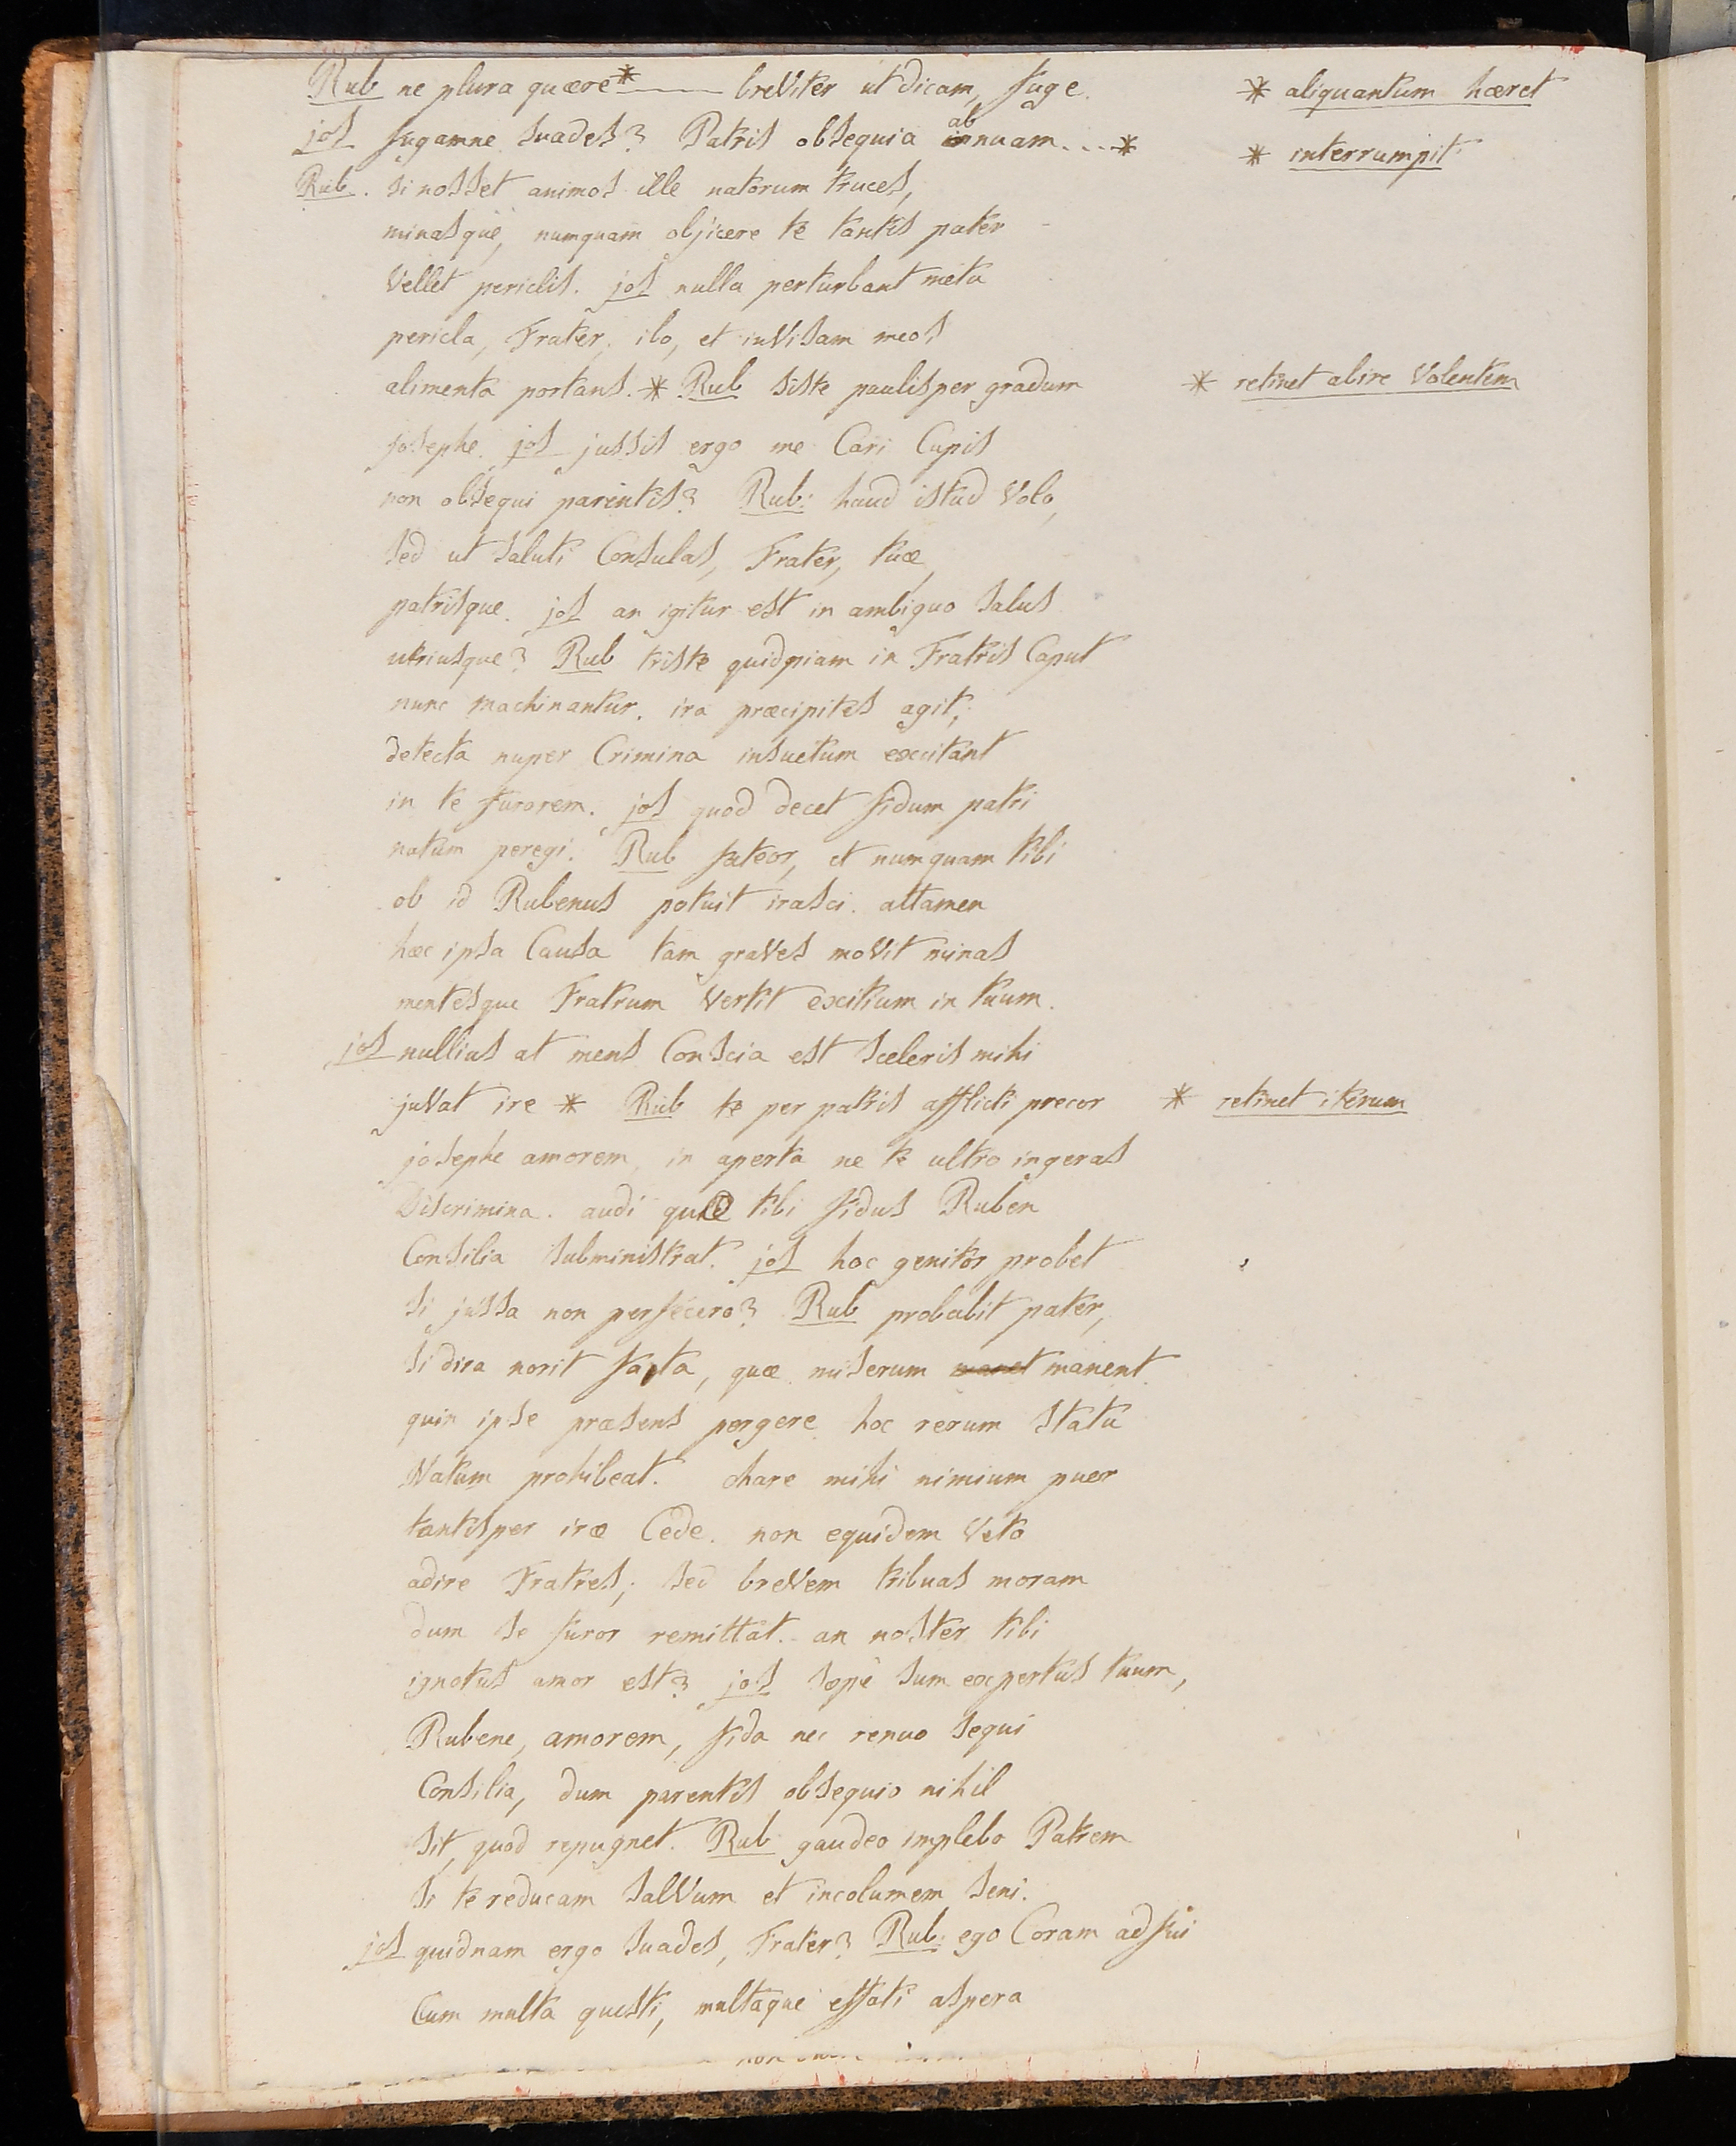 Rub ne plura quære* —— breviter ut dicam, fuge. * aliquantum hæret
jos fugamne suades? Patris obsequia abnuam....* * interrumpit
Rub. si nosset animos ille natorum truces,
minasque, numquam objicere te tantis pater
vellet periclis. jos nulla perturbant metu
pericla, Frater; ibo, et invisam meos
alimenta portans.* Rub siste paulisper gradum * retinet abire volentem
josephe. jos jussis ergo me Cari Cupis
non obsequi parentis? Rub: haud istud volo,
sed ut saluti Consulas, Frater, tuæ,
patrisque. jos an igitur est in ambiguo salus
utriusque? Rub triste quidpiam in Fratris Caput
nunc machinantur. ira præcipites agit;
detecta nuper Crimina insuetum excitant
in te furorem. jos quod decet fidum patri
natum peregi. Rub fateor, et numquam tibi
ob id Rubenus potuit irasci. attamen
hæc ipsa Causa tam graves movit minas
mentesque Fratrum vertit exitium in tuum.
jos nullius at mens Conscia est sceleris mihi
juvat ire * Rub te per patris afflicti precor * retinet iterum
josephe amorem, in aperta ne te ultro ingeras
Discrimina. audi quæ tibi fidus Ruben
Consilia subministrat. jos hoc genitor probet
si jussa non perfecero? Rub probabit pater,
si dira norit fata, quæ miserum manet manent
quin ipse præsens pergere hoc rerum statu
Natum prohibeat. chare mihi nimium puer
tantisper iræ Cede. non equidem veto
adire Fratres; sed brevem tribuas moram
dum se furor remittat. an noster tibi
ignotus amor est? jos sæpe sum expertus tuum,
Rubene, amorem, fida nec renuo sequi
Consilia, dum parentis obsequio nihil
sit, quod repugnet. Rub gaudeo implebo Patrem
si te reducam salvum et incolumem seni.
jos quidnam ergo suades, Frater? Rub: ego Coram adfui
Cum multa questi, multaque effati aspera